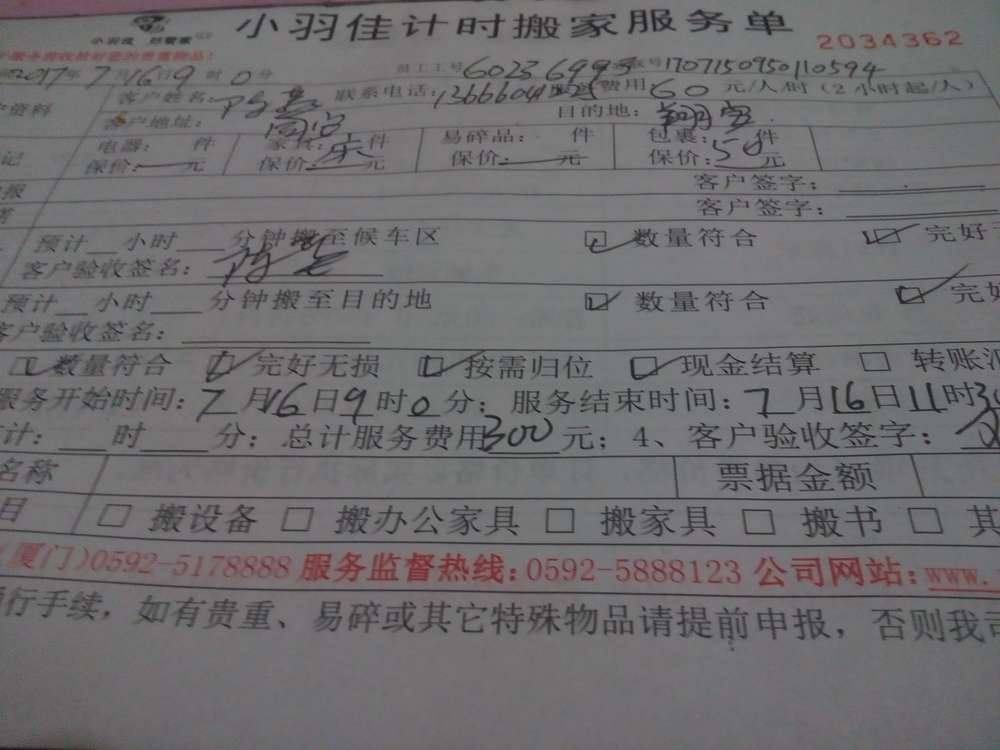 小羽佳计时搬家服务单
小羽佳 好管家
2034362
2017年7月16日9时0分 员工工号 6023 6993 1707150950110594
客户姓名: 联系电话: 费用60元/人/时(2小时起/人)
资料
客户地址: 目的地:翔安
电器: 件 家具: 件 易碎品: 件 包裹:50件
保价: 元 保价: 元 保价: 元 保价: 元
客户签字:
客户签字:
预计 小时 分钟搬至候车区 ☑ 数量符合 ☑ 完好
客户验收签名:
预计 小时 分钟搬至目的地 ☑ 数量符合 ☑ 完好
客户验收签名:
☑ 数量符合 ☑ 完好无损 ☑ 按需归位 ☑ 现金结算 □ 转账
服务开始时间:7月16日9时0分;服务结束时间:7月16日11时30
计: 时 分;总计服务费用300元;4、客户验收签字:
名称 票据金额
目 □ 搬设备 □ 搬办公家具 □ 搬家具 □ 搬书 □ 其
(厦门)0592-5178888 服务监督热线:0592-5888123 公司网站:www.
行手续,如有贵重、易碎或其它特殊物品请提前申报,否则我司